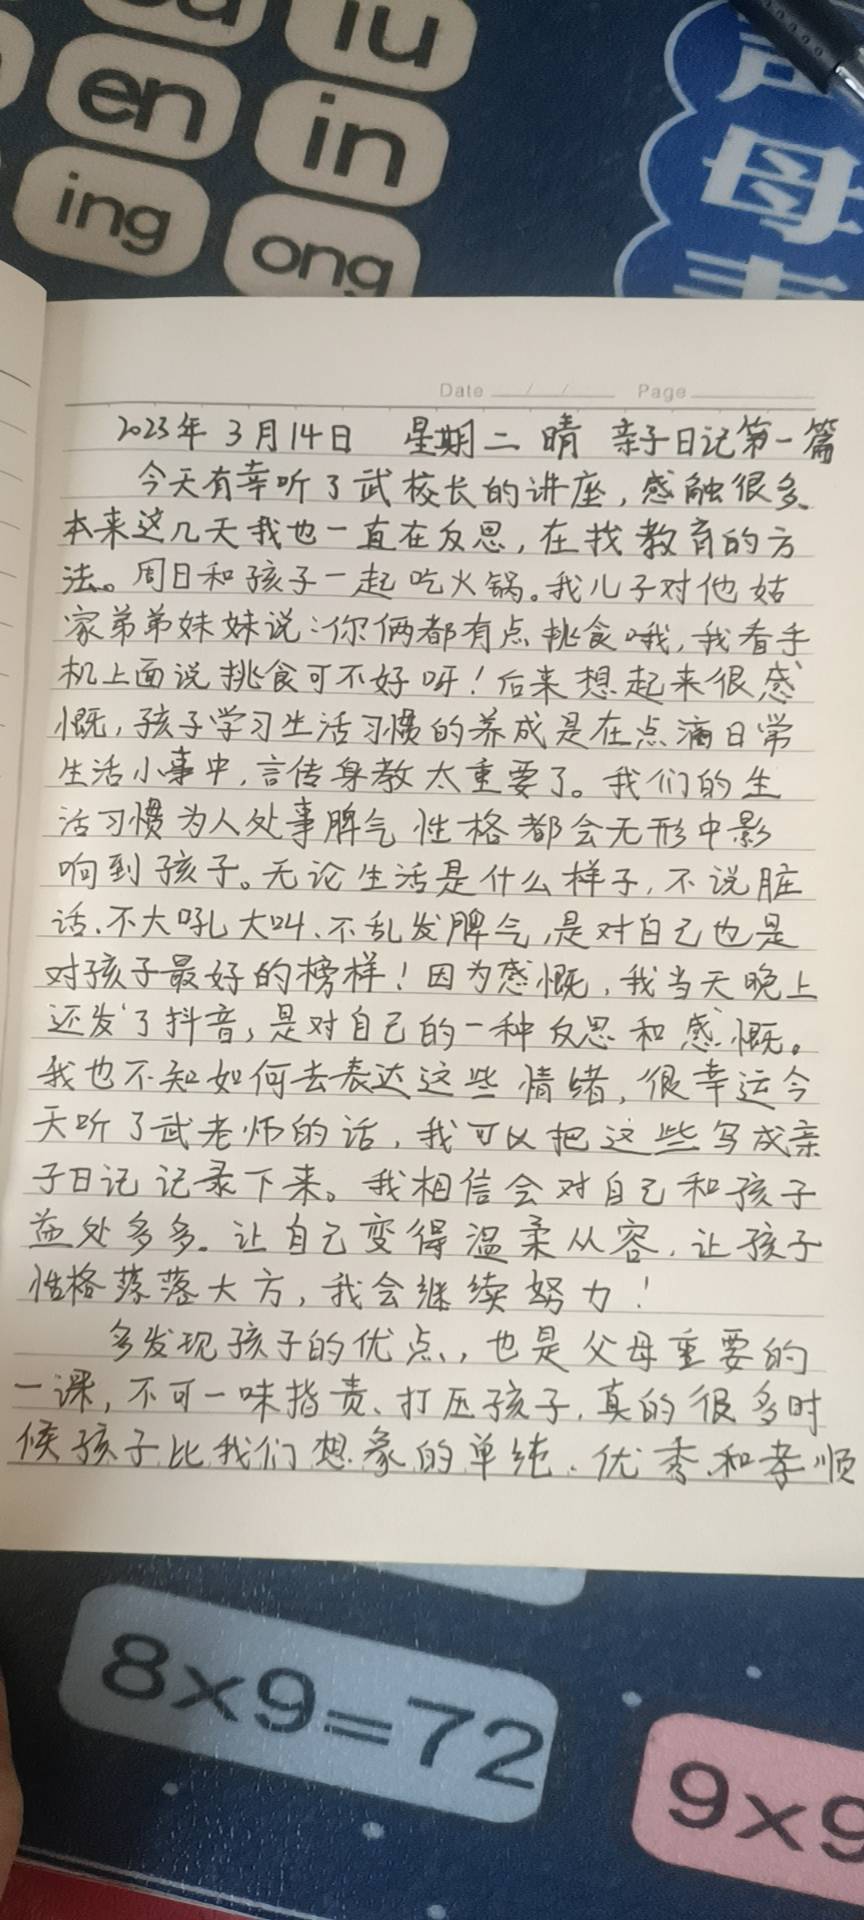 iu
en
in
ing
ong
母
Date / / Page
2023年 3月14日 星期二 晴 亲子日记第一篇
今天有幸听了武校长的讲座,感触很多、
本来这几天我也一直在反思,在找教育的方
法。周日和孩子一起吃火锅。我儿子对他姑
家弟弟妹妹说:你俩都有点挑食哦,我看手
机上面说挑食可不好呀!后来想起来很感
慨,孩子学习生活习惯的养成是在点滴日常
生活小事中,言传身教太重要了。我们的生
活习惯为人处事脾气性格都会无形中影
响到孩子。无论生活是什么样子,不说脏
话、不大吼大叫、不乱发脾气,是对自己也是
对孩子最好的榜样!因为感慨,我当天晚上
还发了抖音,是对自己的一种反思和感慨。
我也不知如何去表达这些情绪,很幸运今
天听了武老师的话,我可以把这些写成亲
子日记记录下来。我相信会对自己和孩子
益处多多。让自己变得温柔从容,让孩子
性格落落大方,我会继续努力!
多发现孩子的优点,也是父母重要的
一课,不可一味指责、打压孩子,真的很多时
候孩子比我们想象的单纯、优秀和孝顺
8×9=72
9×9